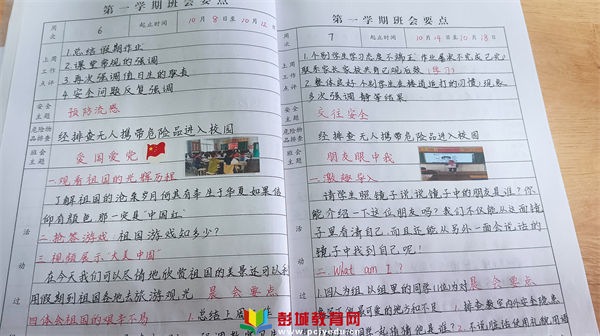 第一学期班会要点
周次
6
起止时间
10月8日至10月12日
上周工作点评
1.总结假期作业
2.课堂常规的强调
3.再次强调值日生的职责
4.安全问题反复强调
安全主题
预防流感
危险物品排查
经排查无人携带危险品进入校园
班会主题
爱国爱党
一.观看祖国的光辉历程
了解祖国的沧桑岁月何其有幸生于华夏如果信
仰有颜色那一定是"中国红"
二.抢答游戏:祖国游戏知多少?
三.视频展示"大美中国"
在今天我们可以尽情地欣赏祖国的美景还可以利
用假期到祖国各地去旅游观光
晨会要点
四.体会祖国的艰辛不易
1.总结上周
活动过
第一学期班会要点
周次
7
起止时间
10月14日至10月18日
上周工作点评
1.个别学生学习态度不端正,作业屡次不完成已完
联系家长家校共育已初见成效(学习)
2.整体良好个别学生坐楼道追打的习惯)现象.
多次强调静等结果
安全主题
交往安全
危险物品排查
经排查无人携带危险品进入校园
班会主题
朋友眼中我
一.激趣导入
请学生照镜子说说镜子中的朋友是谁?你
能介绍一下这位朋友吗?我们不仅能从这面镜
子里看清自己,而且还能从另外一面会说话的
镜子中找到自己呢!
二.What am I?
1.四人为组,以组里的同学(1位为
晨会要点
可爱的地方和不足
活动过
彭城教育网
www.pcjyedu.cn